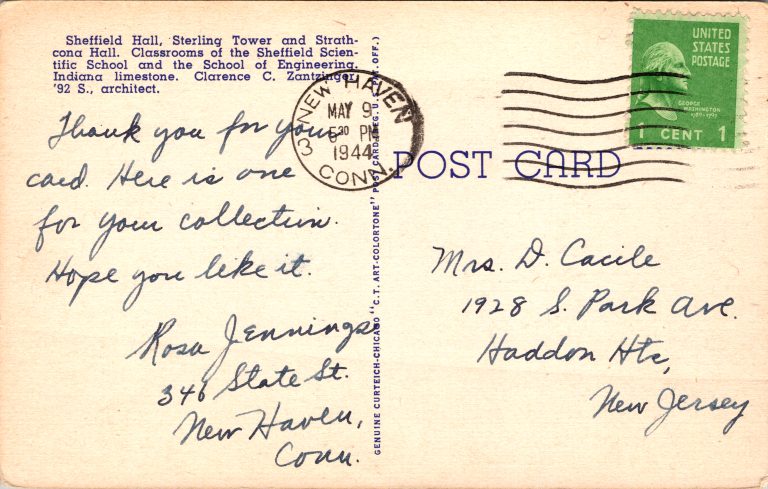 Sheffield Hall, Sterling Tower and Strath-
cona Hall. Classrooms of the Sheffield Scien-
tific School and the School of Engineering.
Indiana limestone. Clarence C. Zantzinger,
'92 S., architect.
Thank you for your
card. Here is one
for your collection.
Hope you like it.
Rosa Jennings
346 State St.
New Haven,
Conn.
GENUINE CURTEICH-CHICAGO "C.T. ART-COLORTONE" POST CARD (REG. U.S. PAT. OFF.)
NEW HAVEN
MAY 9
5 30 PM
1944
CONN.
3
POST CARD
UNITED
STATES
POSTAGE
GEORGE
WASHINGTON
1789-1797
1 CENT 1
Mrs. D. Cacile
1928 S. Park Ave.
Haddon Hts,
New Jersey